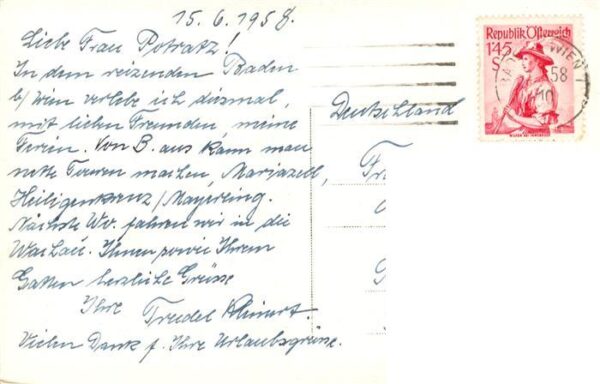 15.6.1958.
Liebe Frau Potratz!
In dem reizenden Baden
b/Wien verlebe ich diesmal,
mit lieben Freunden, meine
Ferien. Von B. aus kann man
nette Touren machen, Mariazell,
Heiligenkreuz/Mayerling.
Nächste Wo. fahren wir in die
Wachau. Ihnen sowie Ihrem
Gatten herzliche Grüsse
Ihre Trudel Kleinert.
Vielen Dank f. Ihre Urlaubsgrüsse.
Deutschland
Fr
Republik Österreich
1'45
S
WIEN 1
58
10